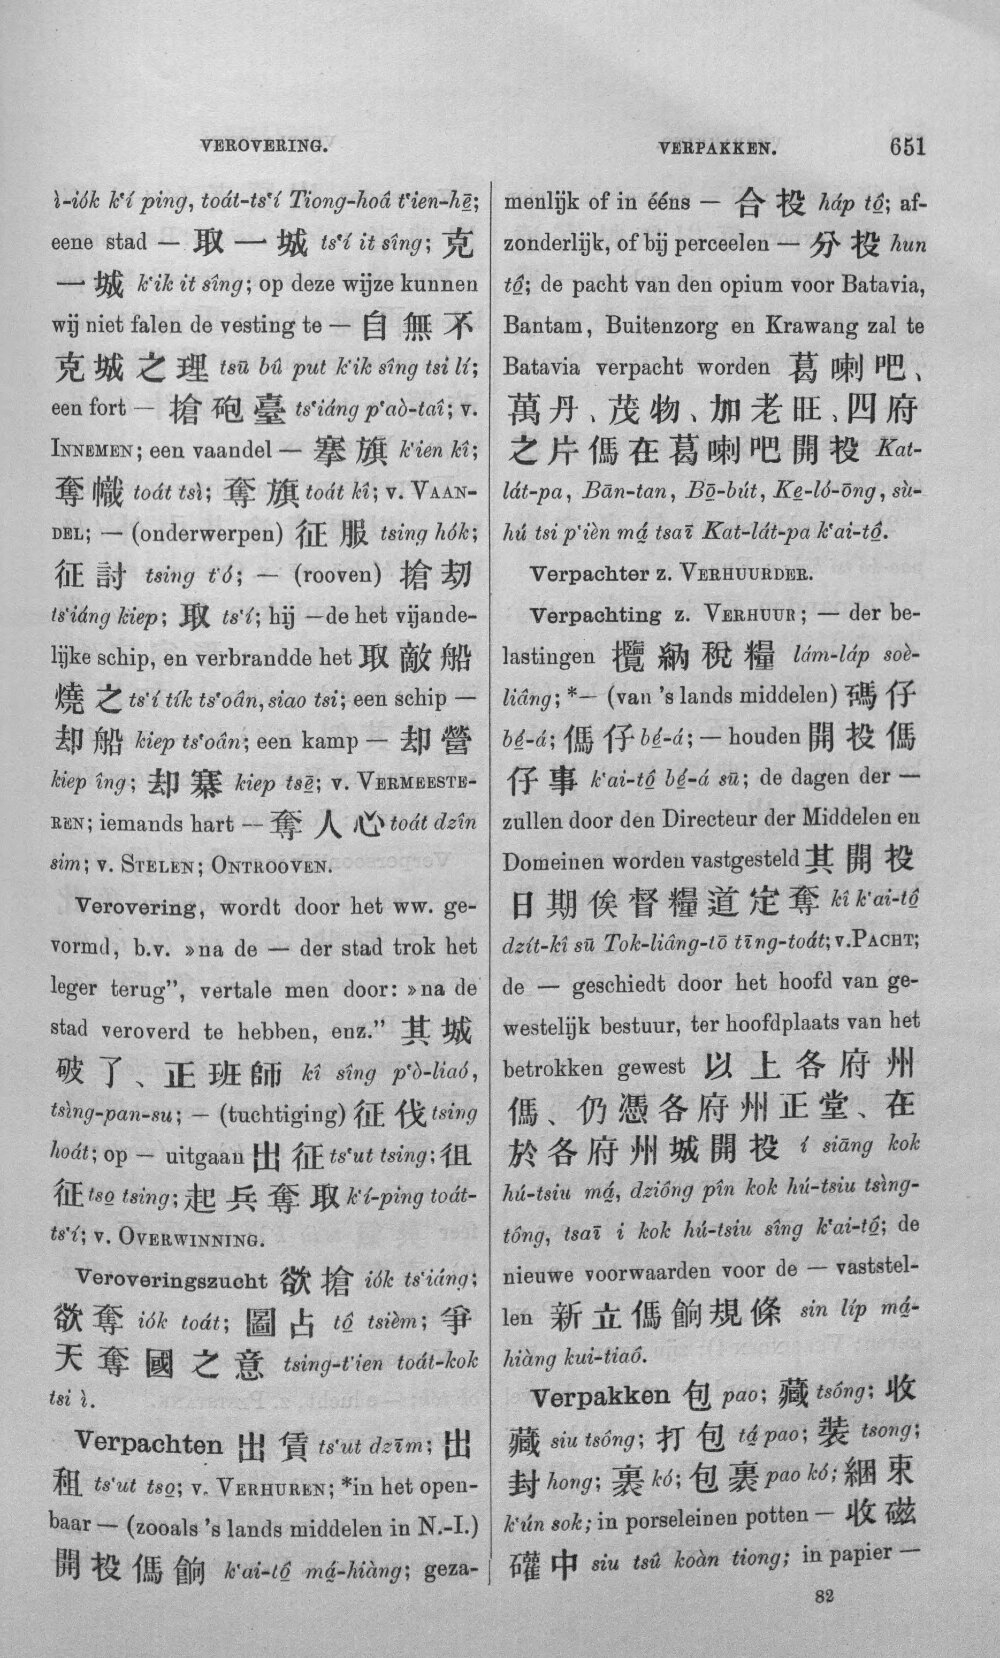 VEROVERING.
VERPAKKEN.
651
ì-iók kʻí ping, toát-tsʻí Tiong-hoâ tʻien-hē̤;
eene stad — 取一城 tsʻí it sîng; 克
一城 kʻik it sîng; op deze wijze kunnen
wij niet falen de vesting te — 自無不
克城之理 tsū bû put kʻik sîng tsi lí;
een fort — 搶砲臺 tsʻiáng pʻaò-taî; v.
INNEMEN; een vaandel — 搴旗 kʻien kî;
奪幟 toát tsì; 奪旗 toát kî; v. VAAN-
DEL; — (onderwerpen) 征服 tsing hók;
征討 tsing tʻó; — (rooven) 搶刧
tsʻiáng kiep; 取 tsʻí; hij —de het vijande-
lijke schip, en verbrandde het 取敵船
燒之 tsʻí tík tsʻoân, siao tsi; een schip —
却船 kiep tsʻoân; een kamp — 却營
kiep îng; 却寨 kiep tsē̤; v. VERMEESTE-
REN; iemands hart — 奪人心 toát dzîn
sim; v. STELEN; ONTROOVEN.
Verovering, wordt door het ww. ge-
vormd, b.v. »na de — der stad trok het
leger terug”, vertale men door: »na de
stad veroverd te hebben, enz.” 其城
破了、正班師 kî sîng pʻò-liaó,
tsìng-pan-su; — (tuchtiging) 征伐 tsing
hoát; op — uitgaan 出征 tsʻut tsing; 徂
征 tso̤ tsing; 起兵奪取 kʻí-ping toát-
tsʻí; v. OVERWINNING.
Veroveringszucht 欲搶 iók tsʻiáng;
欲奪 iók toát; 圖占 tô̤ tsièm; 爭
天奪國之意 tsing-tʻien toát-kok
tsi ì.
Verpachten 出賃 tsʻut dzīm; 出
租 tsʻut tso̤; v. VERHUREN; *in het open-
baar — (zooals ’s lands middelen in N.-I.)
開投傌餉 kʻai-tô̤ má̤-hiàng; geza-
menlijk of in ééns — 合投 háp tô̤; af-
zonderlijk, of bij perceelen — 分投 hun
tô̤; de pacht van den opium voor Batavia,
Bantam, Buitenzorg en Krawang zal te
Batavia verpacht worden 葛喇吧、
萬丹、茂物、加老旺、四府
之片傌在葛喇吧開投 Kat-
lát-pa, Bān-tan, Bō̤-bút, Ke̤-ló-ōng, sù-
hú tsi pʻièn má̤ tsaī Kat-lát-pa kʻai-tô̤.
Verpachter z. VERHUURDER.
Verpachting z. VERHUUR; — der be-
lastingen 攬納稅糧 lám-láp soè-
liâng; *— (van ’s lands middelen) 碼仔
bé̤-á; 傌仔 bé̤-á; — houden 開投傌
仔事 kʻai-tô̤ bé̤-á sū; de dagen der —
zullen door den Directeur der Middelen en
Domeinen worden vastgesteld 其開投
日期俟督糧道定奪 kî kʻai-tô̤
dzít-kî sū Tok-liâng-tō tīng-toát; v. PACHT;
de — geschiedt door het hoofd van ge-
westelijk bestuur, ter hoofdplaats van het
betrokken gewest 以上各府州
傌、仍憑各府州正堂、在
於各府州城開投 í siāng kok
hú-tsiu má̤, dziông pîn kok hú-tsiu tsìng-
tông, tsaī i kok hú-tsiu sîng kʻai-tô̤; de
nieuwe voorwaarden voor de — vaststel-
len 新立傌餉規條 sin líp má̤-
hiàng kui-tiaô.
Verpakken 包 pao; 藏 tsông; 收
藏 siu tsông; 打包 tá̤ pao; 裝 tsong;
封 hong; 裹 kó; 包裹 pao kó; 綑束
kʻún sok; in porseleinen potten — 收磁
礶中 siu tsû koàn tiong; in papier —
82